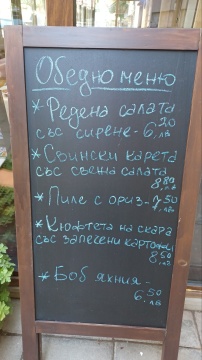 Обедно меню
* Редена салата
със сирене - 6,20 лв
* Свински карета
със свежа салата
8,80 лв.
* Пиле с ориз - 7,50 лв.
* Кюфтета на скара
със запечени картофи
8,50 лв.
* Боб яхния -
6,50 лв.